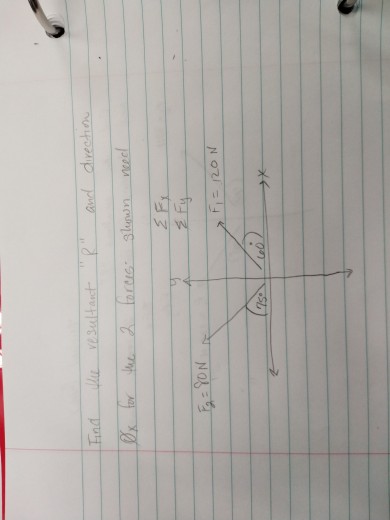 Find the resultant "R" and direction
θx for the 2 forces shown need
ΣFx
ΣFy
y
F₂=90N
F₁=120N
75°
60°
x